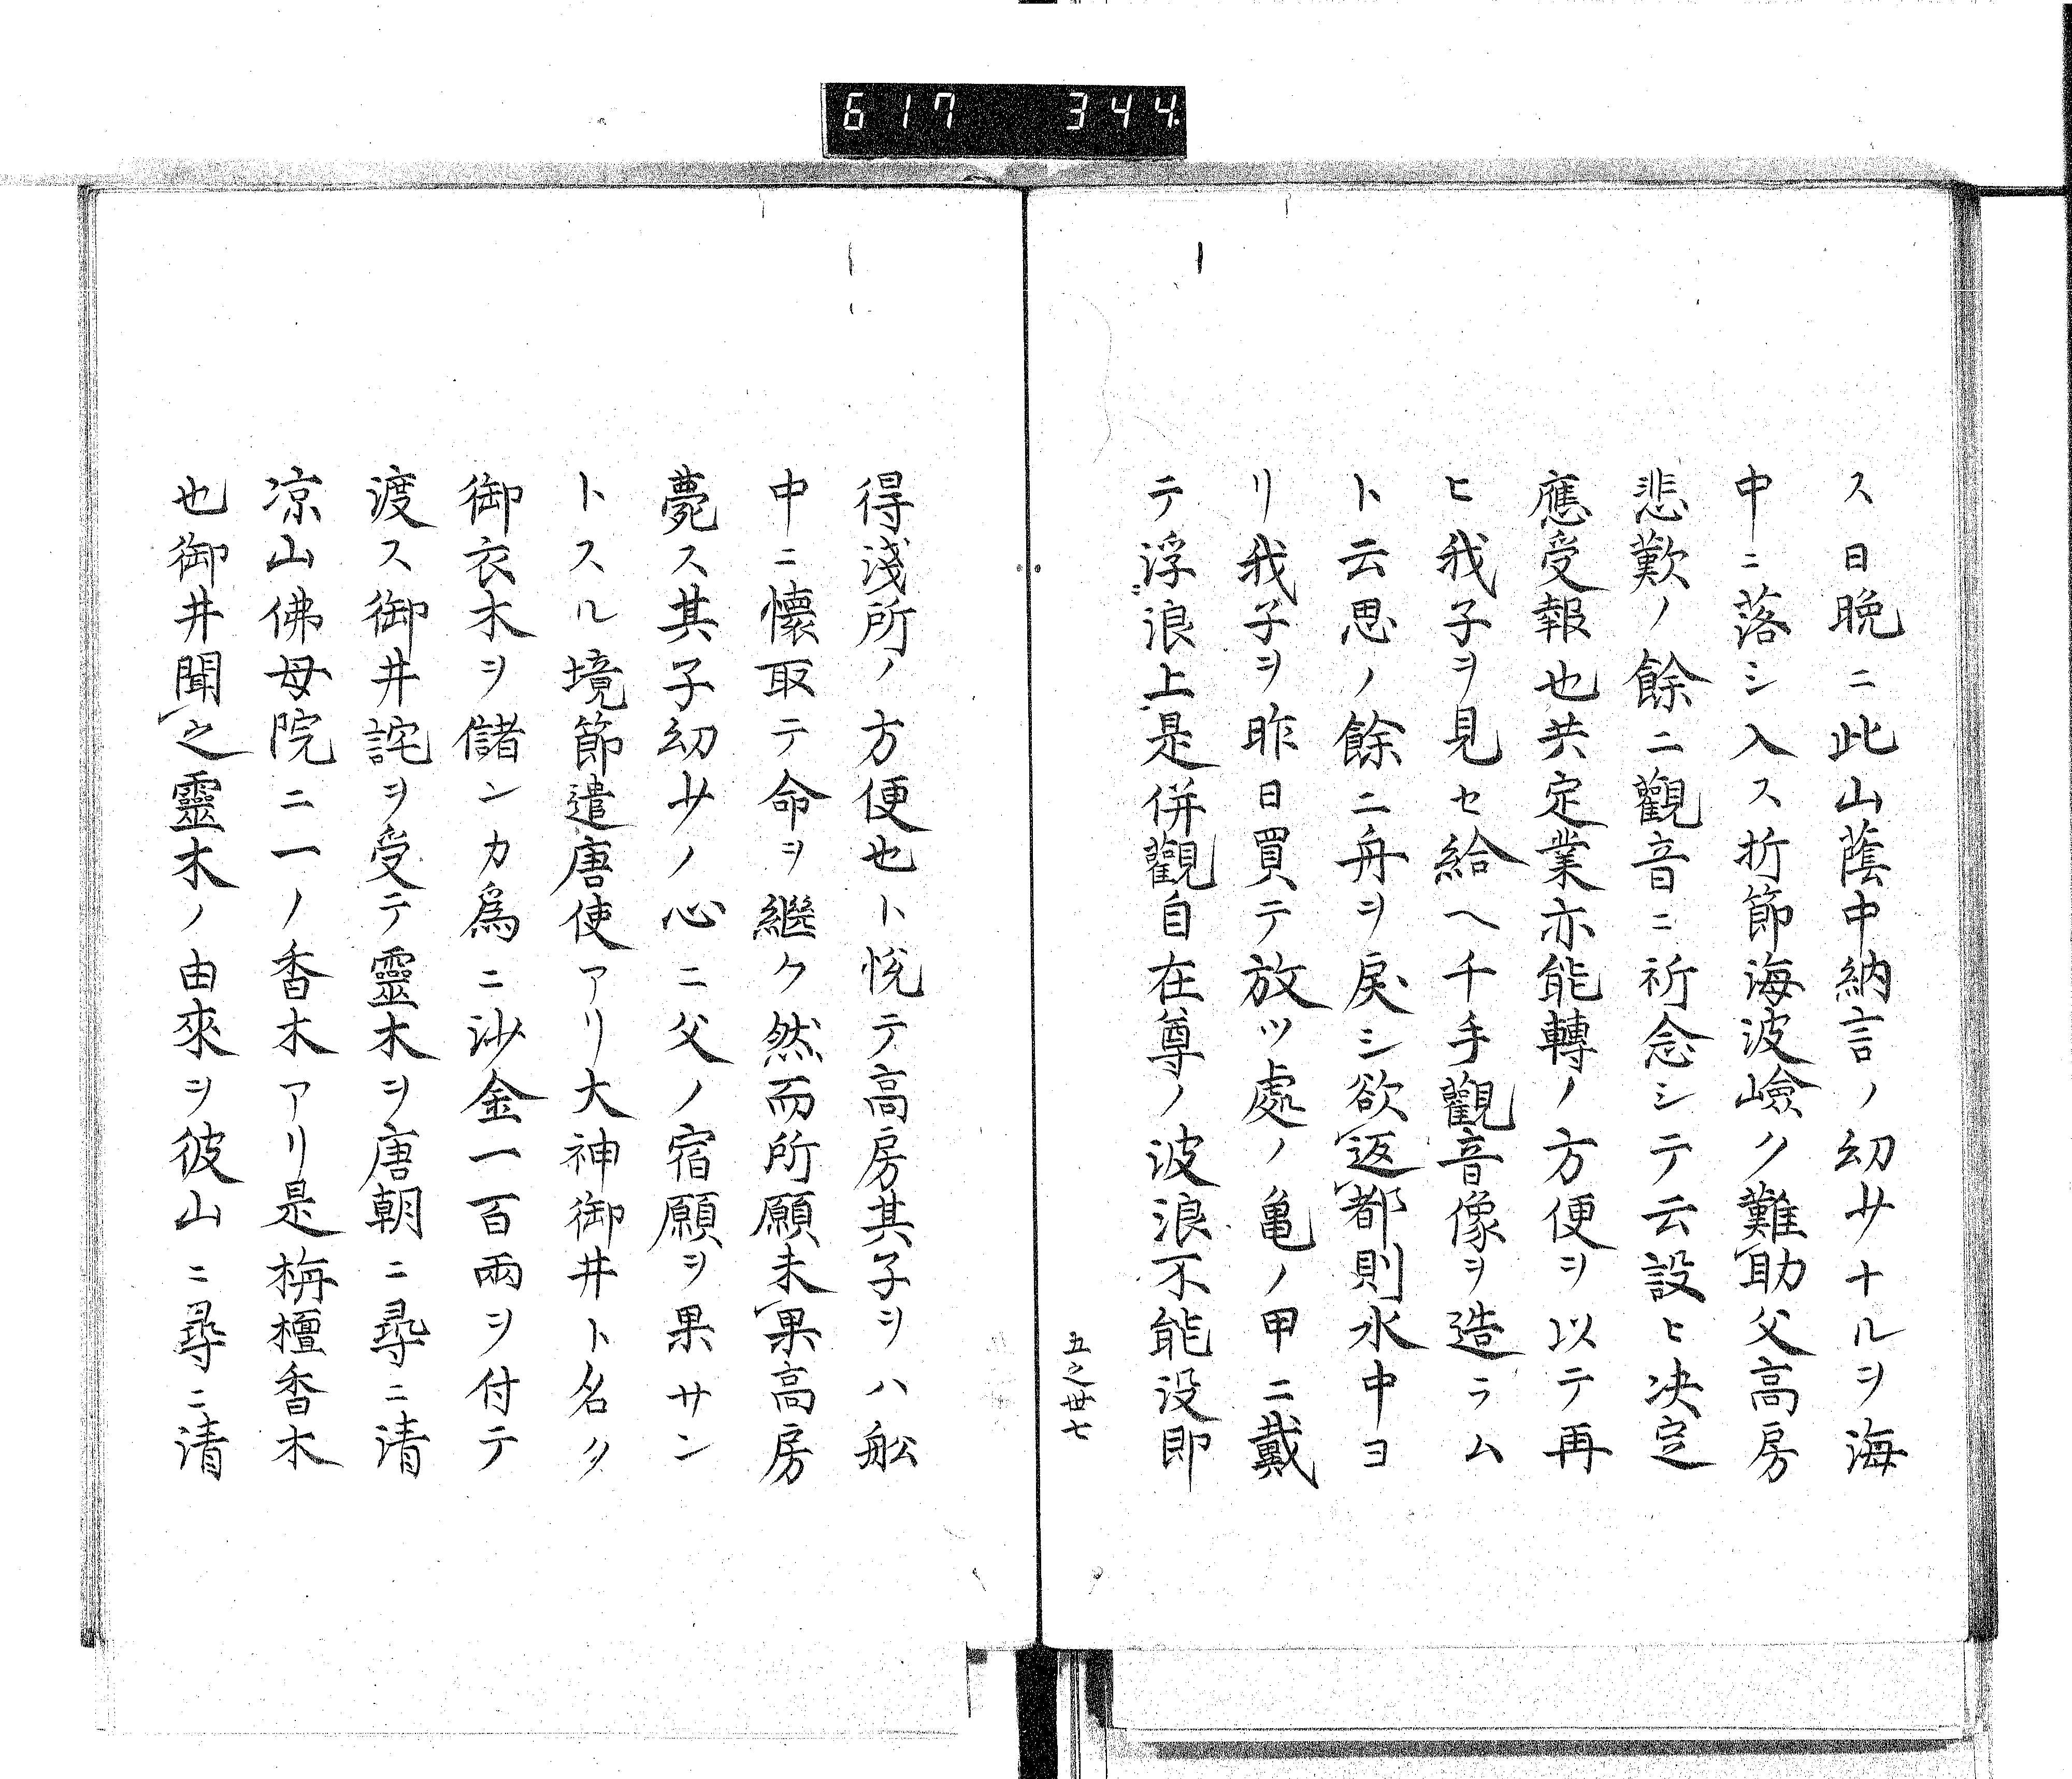 617 344
ス日晩ニ此山蔭中納言ノ幼少ナルヲ海
中ニ落シ入ス折節海波嶮ク難助父高房
悲歎ノ餘ニ觀音ニ祈念シテ云設ヒ決定
應受報也共定業亦能轉ノ方便ヲ以テ再
ヒ我子ヲ見セ給ヘ千手觀音像ヲ造ラム
ト云思ノ餘ニ舟ヲ戻シ欲返都則水中ヨ
リ我子ヲ昨日買テ放ツ處ノ亀ノ甲ニ戴
テ浮浪上是併觀自在尊ノ波浪不能没即
五之卅七
得淺所ノ方便也ト悦テ高房其子ヲハ舩
中ニ懷取テ命ヲ繼ク然而所願未果高房
薨ス其子幼少ノ心ニ父ノ宿願ヲ果サン
トスル境節遣唐使アリ大神御井ト名ク
御衣木ヲ儲ンカ爲ニ沙金一百兩ヲ付テ
渡ス御井詫ヲ受テ靈木ヲ唐朝ニ尋ニ清
凉山佛母院ニ一ノ香木アリ是栴檀香木
也御井聞之靈木ノ由來ヲ彼山ニ尋ニ清